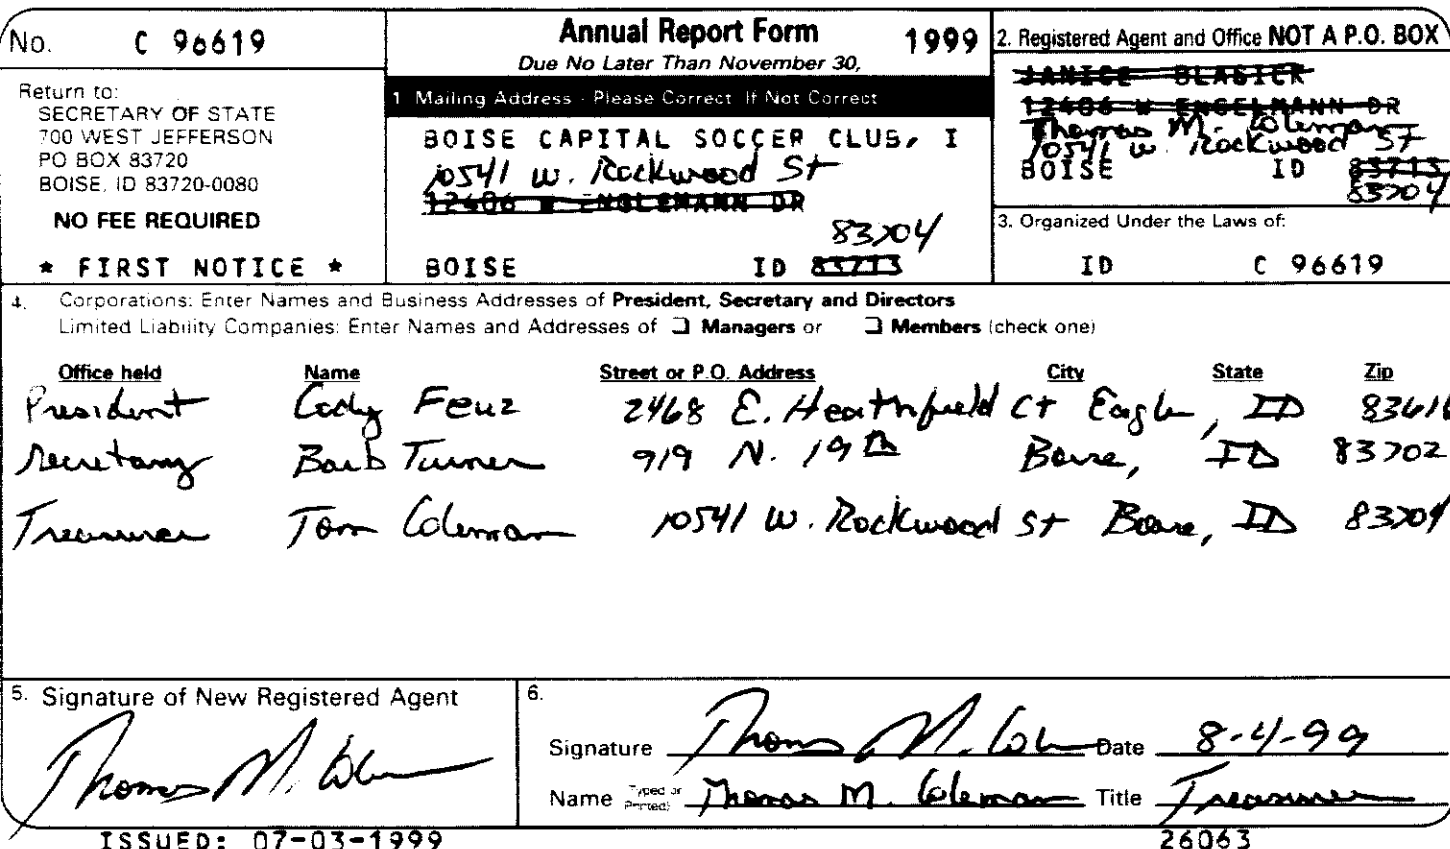 No. C 96619
Return to:
SECRETARY OF STATE
700 WEST JEFFERSON
PO BOX 83720
BOISE, ID 83720-0080
NO FEE REQUIRED
* FIRST NOTICE *
Annual Report Form 1999
Due No Later Than November 30,
1 Mailing Address - Please Correct If Not Correct
BOISE CAPITAL SOCCER CLUB, I
10541 W. Rockwood St
12406 W ENGLEMANN DR
83704
BOISE ID 83713
2. Registered Agent and Office NOT A P.O. BOX
JANICE BLASIER
12406 W ENGELMANN DR
Thomas M. Coleman
10541 W. Rockwood St
BOISE ID 83713
83704
3. Organized Under the Laws of:
ID C 96619
4. Corporations: Enter Names and Business Addresses of President, Secretary and Directors
Limited Liability Companies: Enter Names and Addresses of Managers or Members (check one)
Office held Name Street or P.O. Address City State Zip
President Cody Feuz 2468 E. Heathfield Ct Eagle, ID 83616
Secretary Barb Turner 919 N. 19th Boise, ID 83702
Treasurer Tom Coleman 10541 W. Rockwood St Boise, ID 83704
5. Signature of New Registered Agent
Thomas M. Coleman
6.
Signature Thomas M. Coleman Date 8-4-99
Name (Typed or Printed) Thomas M. Coleman Title Treasurer
ISSUED: 07-03-1999 26063